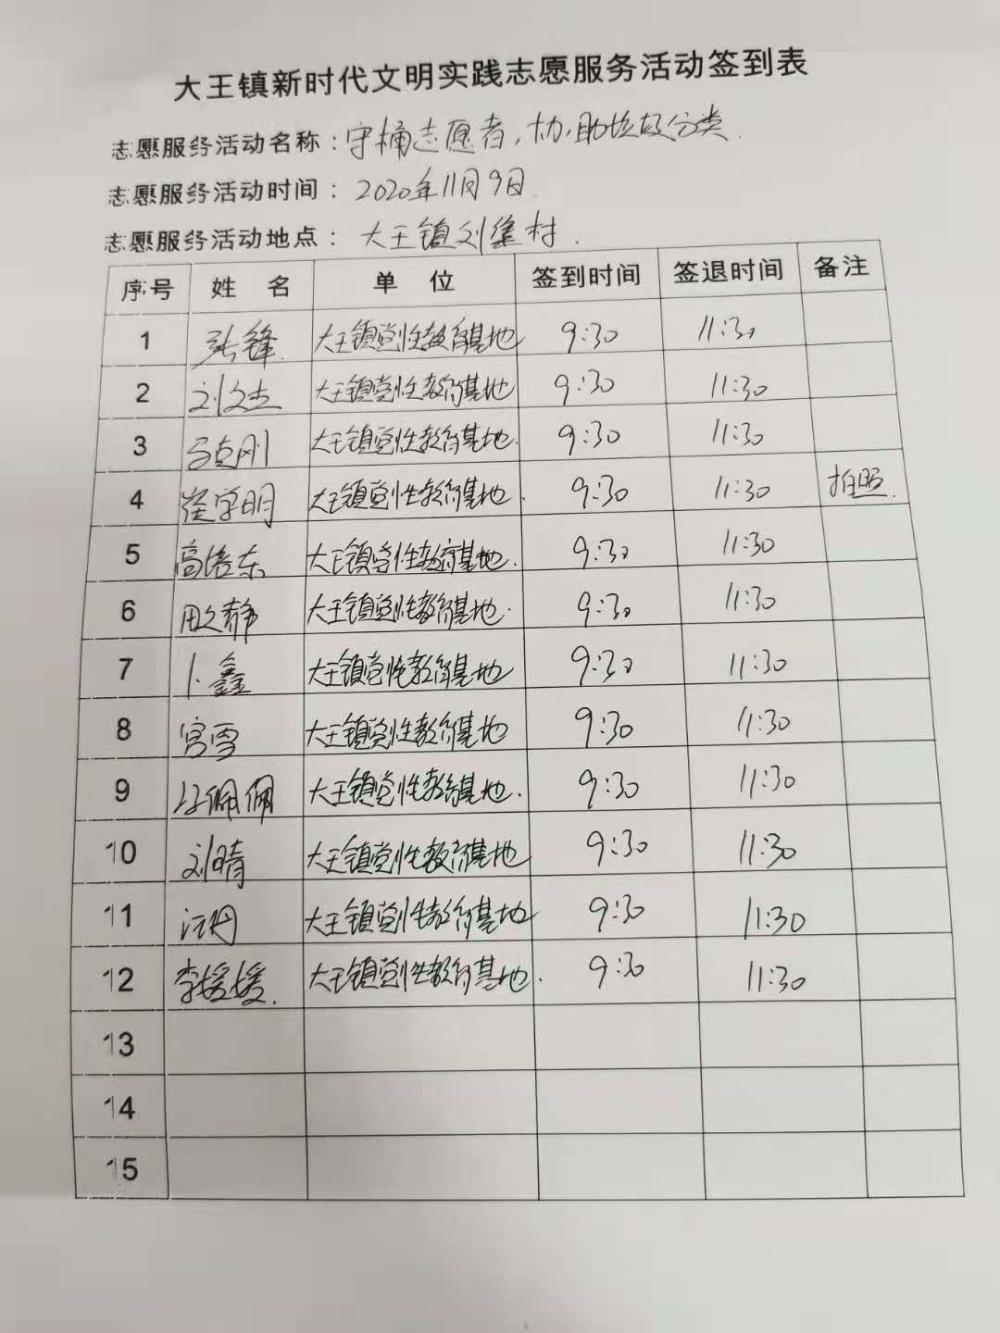 大王镇新时代文明实践志愿服务活动签到表
志愿服务活动名称：守桶志愿者，协助垃圾分类.
志愿服务活动时间：2020年11月9日.
志愿服务活动地点：大王镇刘集村.
序号 姓名 单位 签到时间 签退时间 备注
1 张锋. 大王镇党性教育基地 9:30 11:30
2 刘文杰 大王镇党性教育基地 9:30 11:30
3 大王镇党性教育基地. 9:30 11:30
4 崔学明 大王镇党性教育基地. 9:30 11:30 拍照.
5 高培东 大王镇党性教育基地. 9:30 11:30
6 大王镇党性教育基地. 9:30 11:30
7 卜鑫 大王镇党性教育基地 9:30 11:30
8 宫雪 大王镇党性教育基地 9:30 11:30
9 佩佩 大王镇党性教育基地. 9:30 11:30
10 刘晴 大王镇党性教育基地 9:30 11:30
11 大王镇党性教育基地 9:30 11:30
12 李媛媛. 大王镇党性教育基地. 9:30 11:30
13
14
15